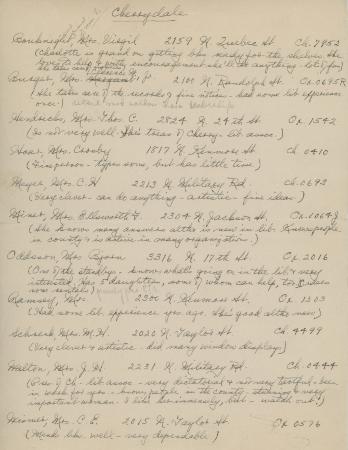 Cherrydale
Bourknight, Mrs. Virgil 2159 N. Quebec St. Ch. 7952
(Charlotte is grand on getting bks ready for the shelves. She
loves to help & with encouragement she'll do anything
Burger, Mrs. 2100 N. Randolph St. Ch. 0695R
(She takes care of the records & fine notices - had some lib experience
over.)
Hendricks, Mrs. Thos. C. 2824 N. 24th St. Ox. 1542
(Is not very well - She's treas of Cherry. lib assoc.)
Hoar, Mrs. Crosby 1817 N. Kenmore St. Ch 0410
(Fine person - types some, but has little time.)
Meyer, Mrs. C. H. 2213 N. Military Rd. Ch. 0693
(Very clever - can do anything - artistic - fine ideas)
Minet, Mrs. Ellsworth F. 2304 N. Jackson St. Ch. 1064J
(She knows many answers altho is new in lib. Knows people
in county & is active in many organizations.)
Oddsson, Mrs. Bjorn 3316 N. 17th St. Ox. 2016
(One of the standbys - knows what's going on in the lib & very
interested. Has 5 daughters, some of whom can help, too. Does
now rentals)
Ramsey, Mrs. 2300 N. Kenmore St. Ox. 1203
(Had some lib experience yrs ago. She's good altho new)
Schreck, Mrs. M. H. 2020 N. Taylor St. Ch. 4499
(Very clever & artistic - did many window displays)
Walton, Mrs. J. H. 2231 N. Military Rd. Ch. 0444
(Pres. of Ch. lib assoc - very dictatorial & not very tactful - been
in work for yrs - knows people in the county - & very
important woman. I like her immensely, but - watch out!)
Wisner, Mrs. C. E. 2015 N. Taylor St. Ox 0576
(Mends bks well - very dependable)